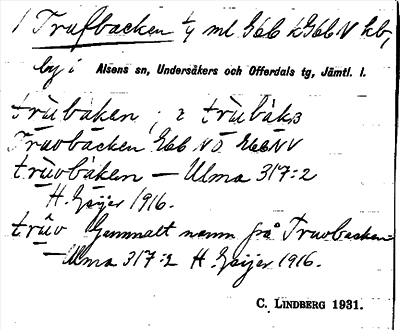 1 Trufbacken 1/4 ml G6b kG6b N kb,
by i Alsens sn, Undersåkers och Offerdals tg, Jämtl. l.
trùbàken ; 2 trùbàks
Truvbacken G6b N Ö G6b N V
trùvbàken — Ulma 317:2
H. Geijer 1916.
trûv Gammalt namn på Truvbacken
— Ulma 317:2 H. Geijer 1916.
C. LINDBERG 1931.